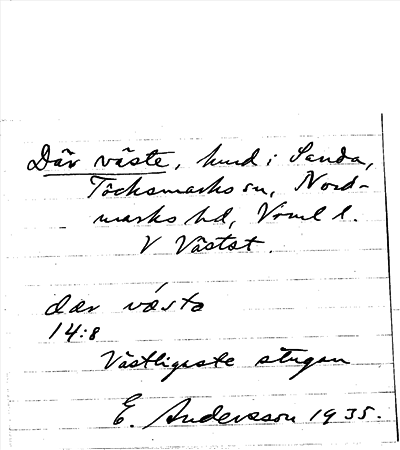 Där väste, hmd i Sanda,
Töcksmarks sn, Nord-
marks hd, Vrml l.
V Västst.
där västa
14:8
Västligaste stugan
E. Andersson 1935.